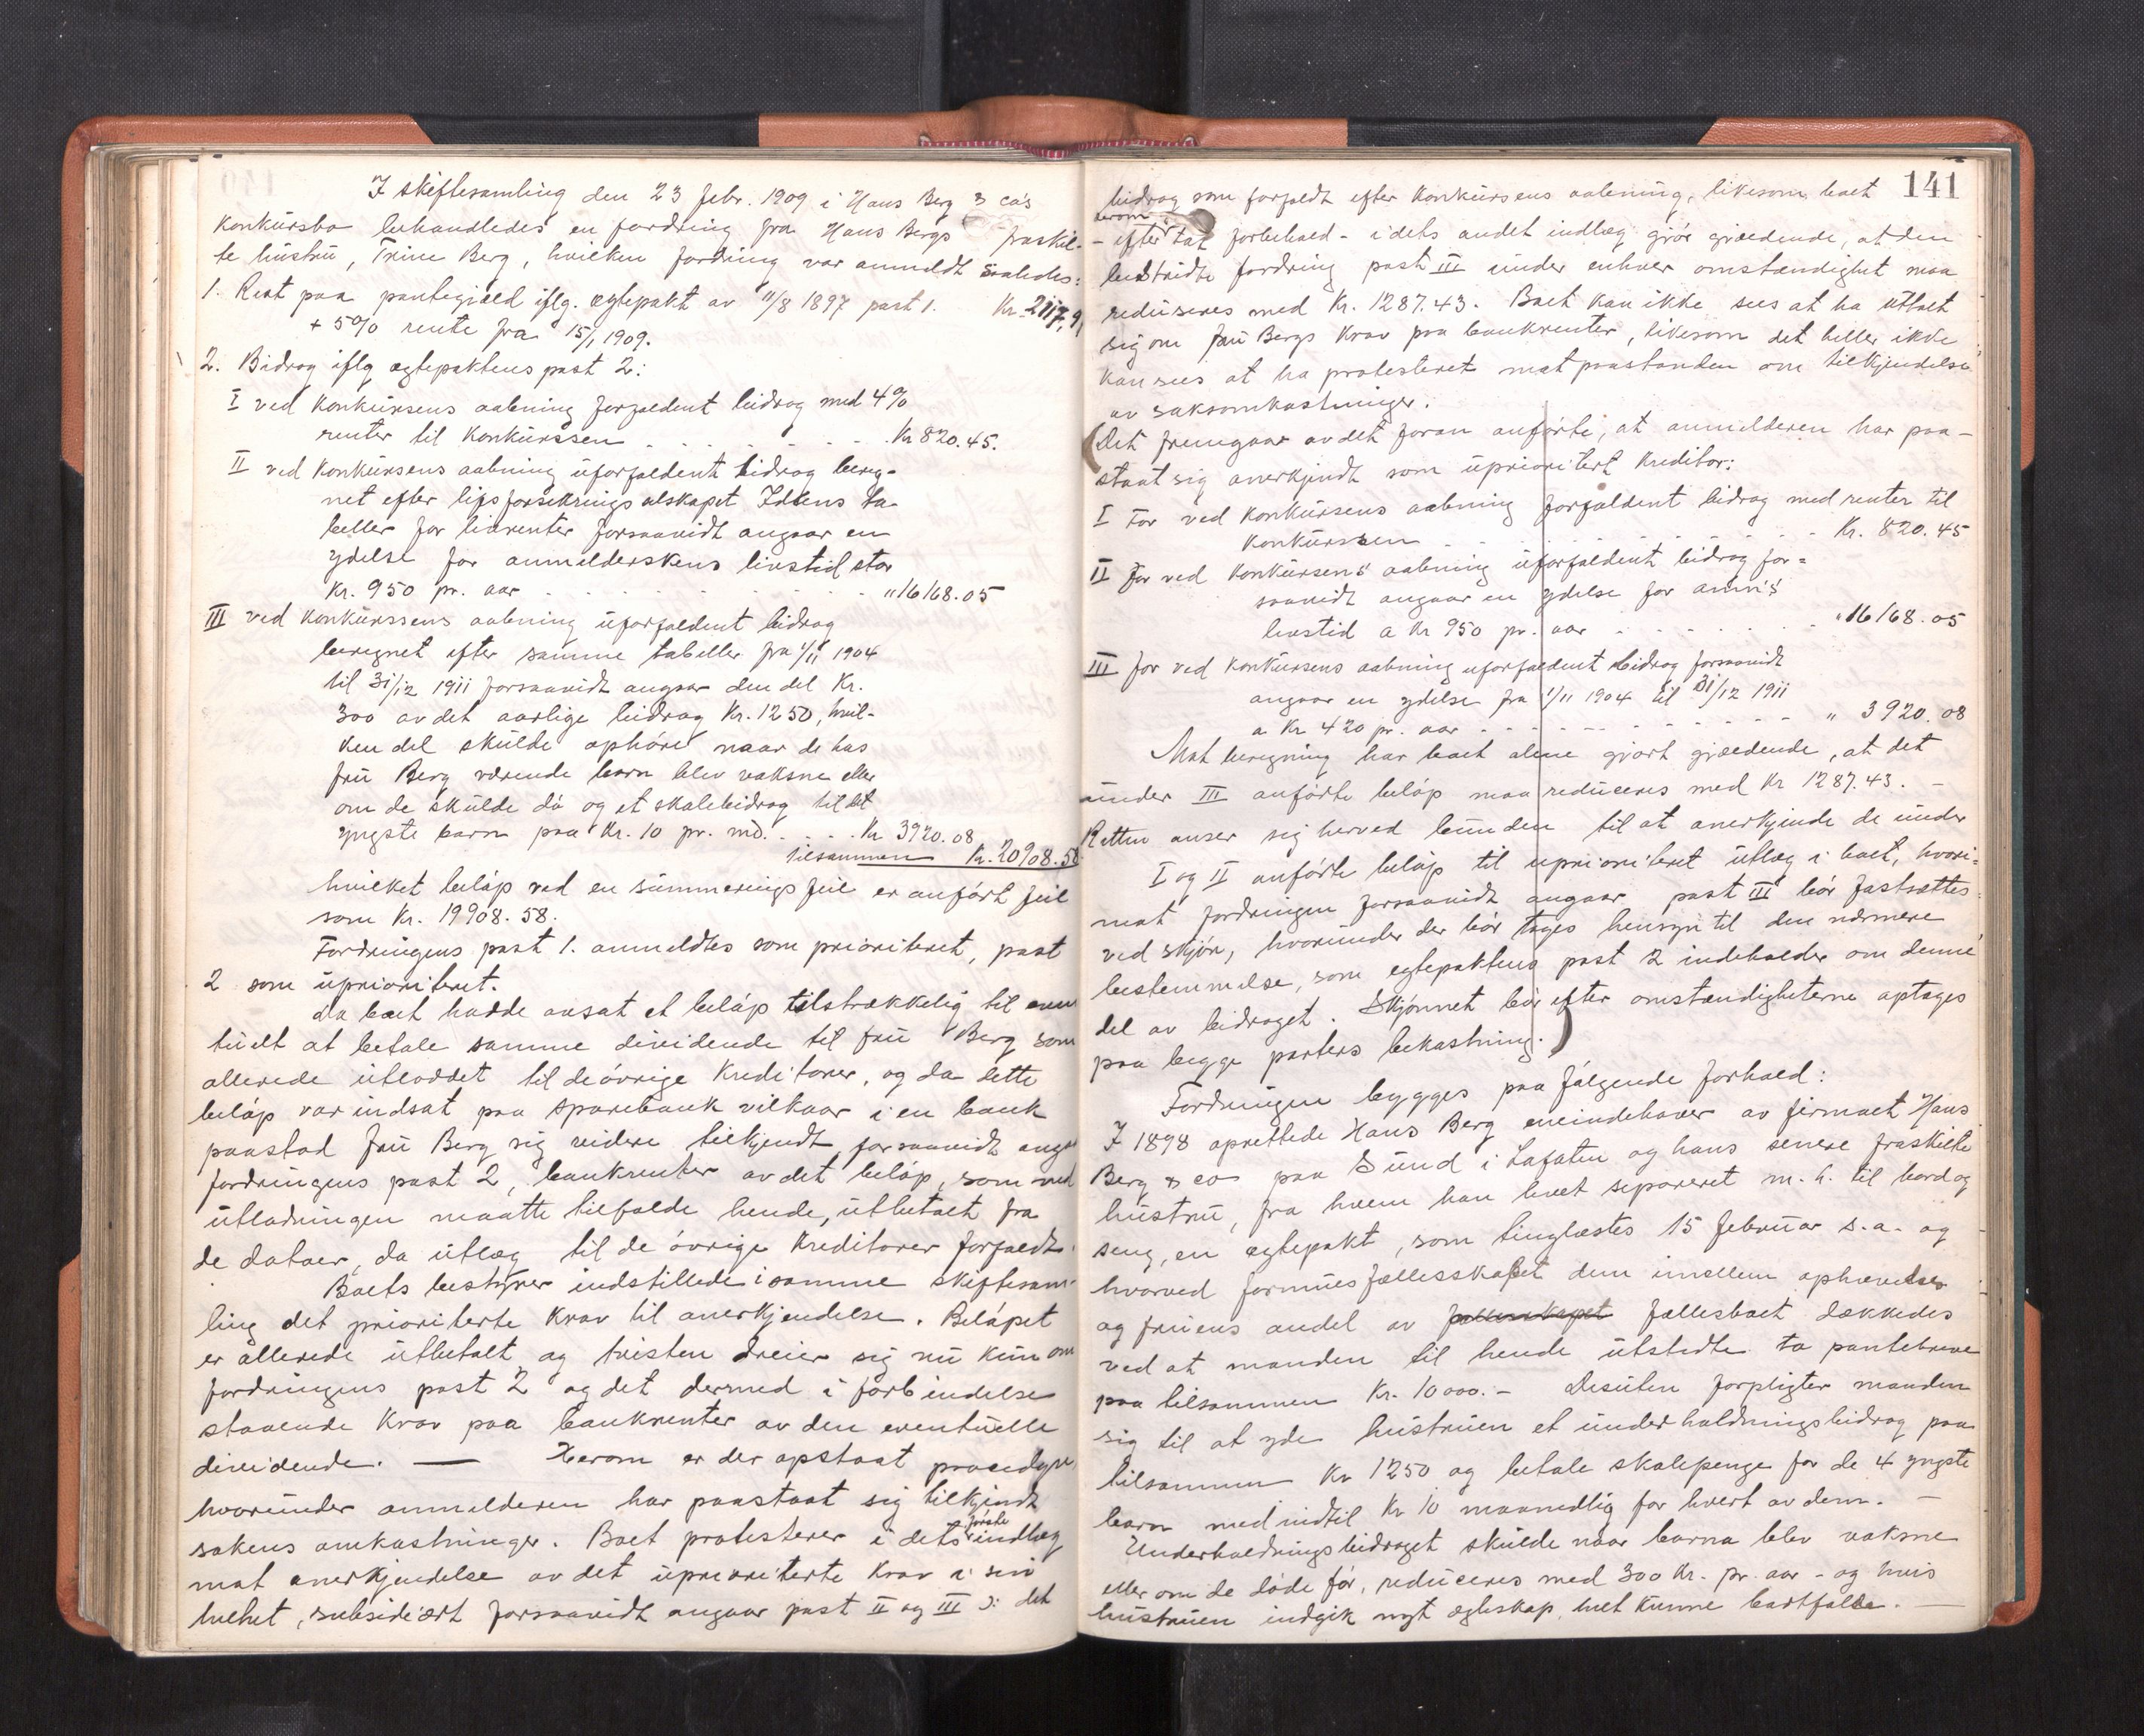 I skiftesamling den 23 febr. 1909 i Hans Berg & co's
konkursbo behandledes en fordring fra Hans Bergs fraskil-
te hustru, Trine Berg, hvilken fordring var anmeldt saaledes:
1. Rest paa pantegjæld iflg. egtepakt av 11/8 1897 post 1. Kr. 2117,9
+ 5% rente fra 15/1 1909.
2. Bidrag iflg egtepaktens post 2:
I ved konkursens aabning forfaldent bidrag med 4%
renter til konkurssen . . . . . Kr 820.45.
II ved konkursens aabning uforfaldent bidrag bereg-
net efter livsforsikringsselskapet Iduns ta-
beller for livrenter forsaavidt angaar en
ydelse for anmelderskens livstid stor
Kr. 950 pr. aar . . . . . " 16168.05
III ved konkurssens aabning uforfaldent bidrag
beregnet efter samme tabeller fra 1/11 1904
til 31/12 1911 forsaavidt angaar den del Kr.
300 av det aarlige bidrag Kr. 1250, hvil-
ken del skulde ophøre naar de hos
fru Berg værende barn blev voksne eller
om de skulde dø og et skolebidrag til det
yngste barn paa Kr. 10 pr. md. . . . Kr 3920.08
tilsammen Kr. 20908.58
hvilket beløp ved en summeringsfeil er anført feil
som Kr. 19908.58.
Fordringens post 1. anmeldtes som prioritert, post
2 som uprioriteret.
Da boet hadde avsat et beløp tilstrækkelig til even
tuelt at betale samme dividende til fru Berg som
allerede utloddet til de øvrige kreditorer, og da dette
beløp var indsat paa sparebank vilkaar i en bank
paastod fru Berg sig videre tilkjendt forsaavidt anga
fordringens post 2, bankrenter av det beløp, som ved
utlodningen maatte tilfalde hende, utbetalt fra
de datoer, da utlæg til de øvrige kreditorer forfaldt.
Boets bestyrer indstillede i samme skiftesam-
ling det prioriterte krav til anerkjendelse. Beløpet
er allerede utbetalt og tvisten dreier sig nu kun om
fordringens post 2 og det dermed i forbindelse
staaende krav paa bankrenter av den eventuelle
dividende. — Herom er der opstaat procedyre,
hvorunder anmelderen har paastaat sig tilkjendt
sakens omkostninger. Boet protesterer i dets første indlæg
mot anerkjendelse av det uprioriterte krav i sin
helhet, subsidiært forsaavidt angaar post II og III ɔ: det
141
bidrag som forfaldt efter konkursens aabning, likesom boet
- efter herom tat forbehold - i dets andet indlæg gjør gjældende, at den
bestridte fordring post III under enhver omstændighet maa
reduseres med Kr. 1287.43. Boet kan ikke sees at ha uttalt
sig om fru Bergs krav paa bankrenter, likesom det heller ikke
kan sees at ha protesteret mot paastanden om tilkjendelse
av saksomkostninger.
(Det fremgaar av det foran anførte, at anmelderen har paa-
staat sig anerkjendt som uprioritert kreditor:
I For ved konkursens aabning forfaldent bidrag med renter til
konkurssen . . . . . Kr. 820.45
II for ved konkursens aabning uforfaldent bidrag for-
saavidt angaar en ydelse for anm's
livstid a Kr 950 pr. aar . . . . . " 16168.05
III for ved konkursens aabning uforfaldent bidrag forsaavidt
angaar en ydelse fra 1/11 1904 til 31/12 1911
a Kr 420 pr. aar . . . . . " 3920.08
Mot beregning har boet alene gjort gjældende, at det
under III anførte beløp maa reduceres med Kr 1287.43. -
Retten anser sig herved bunden til at anerkjende de under
I og II anførte beløp til uprioriteret utlæg i boet, hvori-
mot fordringen forsaavidt angaar post III bør fastsættes
ved skjøn, hvorunder der bør tages hensyn til den nærmere
bestemmelse, som egtepaktens post 2 indeholder om denne
del av bidraget. Skjønnet bør efter omstændigheterne optages
paa begge parters bekostning.)
Fordringen bygges paa følgende forhold:
I 1898 oprettede Hans Berg eneindehaver av firmaet Hans
Berg & co paa Sund i Lofoten og hans senere fraskilte
hustru, fra hvem han levet separeret m.h. til bord og
seng, en egtepakt, som tinglæstes 15 februar s.a. og
hvorved formuesfællesskapet dem imellem ophævedes
og fruens andel av fællesskapet fællesboet dækkedes
ved at manden til hende utstedte to pantebreve
paa tilsammen Kr. 10000.- Desuten forpligter manden
sig til at yde hustruen et underholdningsbidrag paa
tilsammen Kr 1250 og betale skolepenge for de 4 yngste
barn med indtil Kr 10 maanedlig for hvert av dem. -
Underholdningsbidraget skulde naar barna blev voksne
eller om de døde før, reduceres med 300 Kr. pr. aar - og hvis
hustruen indgik nyt egteskap, helt kunne bortfalde. -